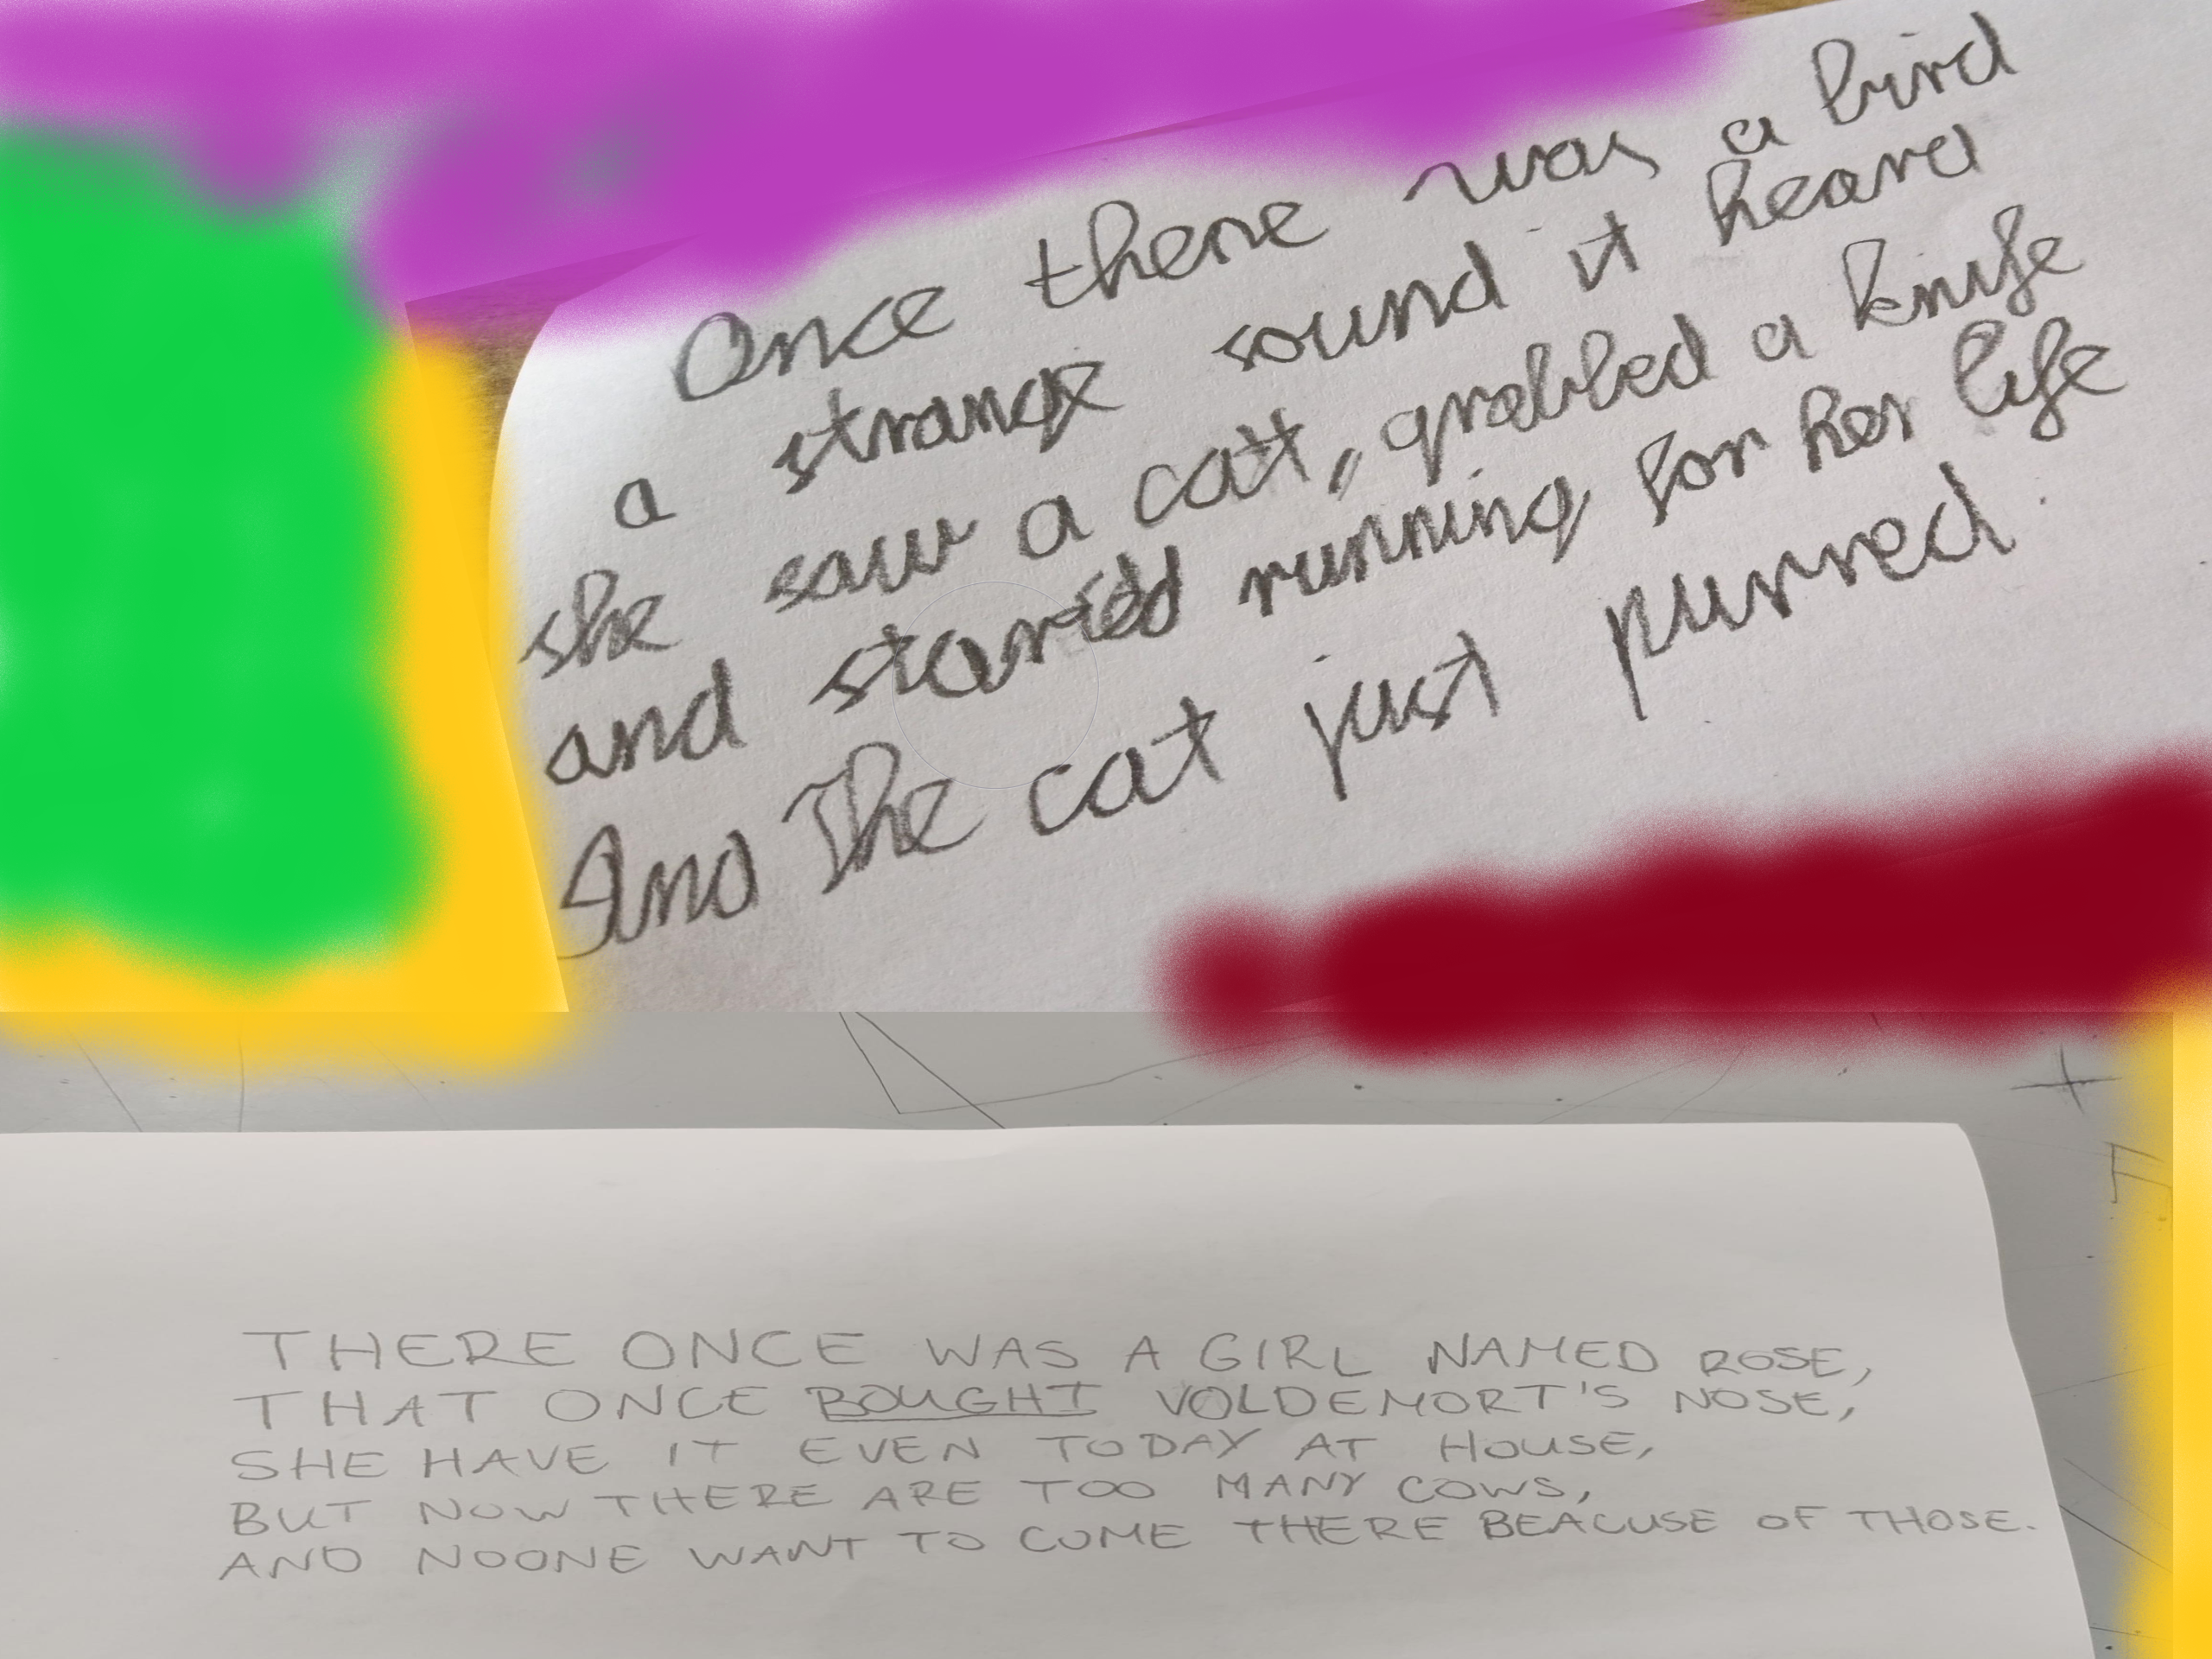 Once there was a bird
a strange sound it heard
she saw a cat, grabbed a knife
and started running for her life
And The cat just purred.
THERE ONCE WAS A GIRL NAMED ROSE,
THAT ONCE BOUGHT VOLDEMORT'S NOSE,
SHE HAVE IT EVEN TODAY AT HOUSE,
BUT NOW THERE ARE TOO MANY COWS,
AND NOONE WANT TO COME THERE BEACUSE OF THOSE.